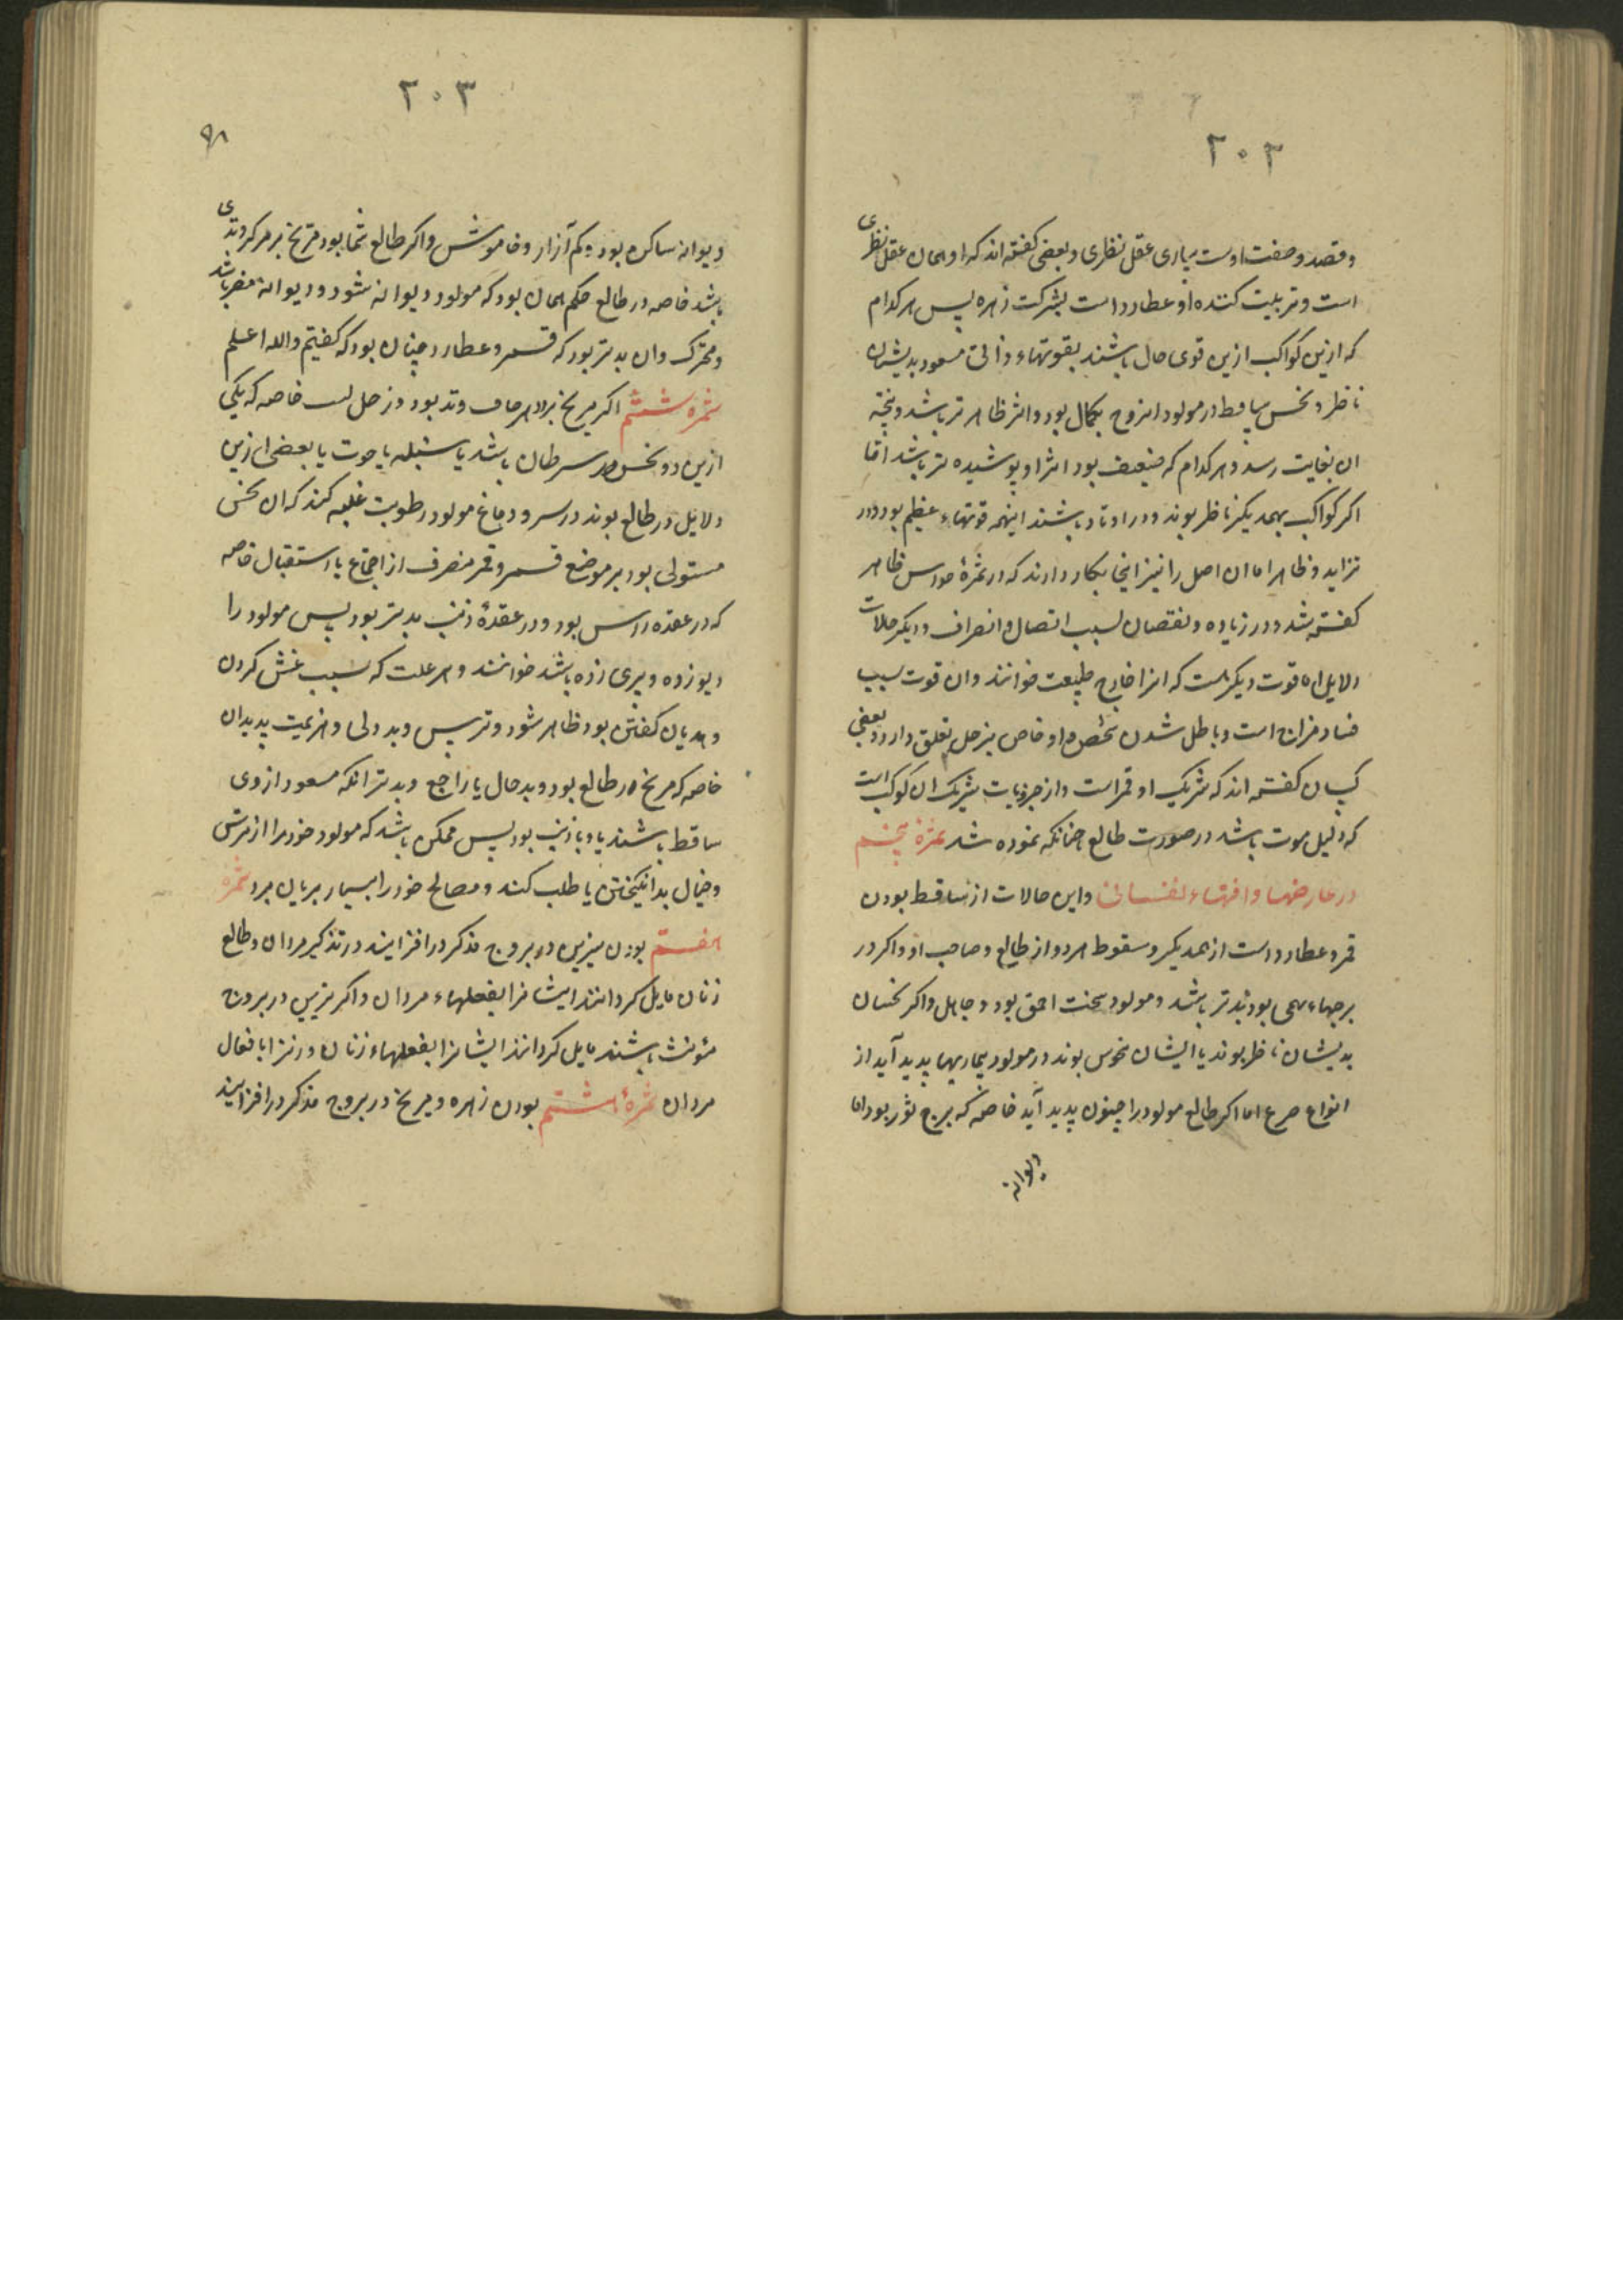 ۲۰۲
و قصد و صفت اوست بیاری عقل نظری و بعضی گفته اند که او همان عقل نظری
است و تربیت کننده او عطارد است بشرکت زهره پس هر کدام
که ازین کواکب ازین قوی حال باشند بقوتهاء ذاتی مسعود بدیشان
ناظر و نحس ساقط در مولود این روح بکمال بود و اثر ظاهر تر باشد و نتیجه
ان بغایت رسد و هر کدام که ضعیف بود اثر او پوشیده تر باشد اما
اکر کواکب بهمدیکر ناظر بوند و در اوتاد باشند اینهمه قوتهاء عظیم بود و در
تزاید و ظاهر اما ان اصل را نیز اینجا بکار دارند که در ثمرهٔ حواس ظاهر
کفته شد و در زیاده و نقصان بسبب اتصال و انصراف و دیکر حالات
دلایل اما قوت دیکر هست که انرا خارج طبیعت خوانند و ان قوت سبب
فساد مزاج است و باطل شدن شخص و او خاص بزحل تعلق دارد و بعضی
کسان کفته اند که شریک او قمر است و از جزویات شریک ان کوکب است
که دلیل موت باشد در صورت طالع چنانکه نموده شد ثمرهٔ پنجم
در عارضها و افتهاء نفسانی و این حالات از ساقط بودن
قمر و عطارد است از همدیکر و سقوط هر دو از طالع و صاحب او و اکر در
برجهاء بهیمی بود بتر باشد و مولود سخت احمق بود و جاهل و اکر نحسان
بدیشان ناظر بوند یا ایشان منحوس بوند در مولود بیماریها پدید آید از
انواع صرع اما اکر طالع مولود را جنون پدید آید خاصه که برج ثور بود اما
دیوانه
۲۰۳
۹۸
دیوانه ساکن بود و کم آزار و خاموش و اکر طالع شما بود مریخ بر مرکز وتدی
باشد خاصه در طالع حکم همان بود که مولود دیوانه شود و دیوانه مضر باشد
و متحرک و ان بدتر بود که قمر و عطارد چنان بود که کفتیم والله اعلم
ثمرهٔ ششم اکر مریخ وتد بود و زحل خاصه که یکی
ازین دو نحس در سرطان باشد یا سنبله یا حوت یا بعضی ازین
دلایل در طالع بوند در سر و دماغ مولود رطوبت غلبه کند که ان نحس
مستولی بود بر موضع قمر و قمر منصرف از اجتماع یا استقبال خاصه
که در عقده راس بود و در عقدهٔ ذنب بدتر بود پس مولود را
دیو زده و پری زده باشد خوانند و هر علت که سبب غش کردن
و هذیان کفتن بود ظاهر شود و ترس و بددلی و هزیمت پدید ان
خاصه که مریخ در طالع بود و بد حال یا راجع و بدتر انکه مسعود از وی
ساقط باشند یا با ذنب بود پس ممکن باشد که مولود خود را از ترس
و خیال بد انکیختن یا طلب کند و مصالح خود را بسیار بزیان برد ثمره
هفتم بودن نیرین در بروج مذکر در افزایند در تذکیر مردان و طالع
زنان مایل کردانند ایشانرا بفعلهاء مردان و اکر نیرین در بروج
مؤنث باشند مایل کردانند ایشانرا بفعلهاء زنان و زنرا بافعال
مردان ثمرهٔ هشتم بودن زهره و مریخ در بروج مذکر در افزایند